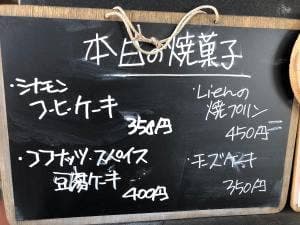 本日の焼菓子
・シナモン
コーヒーケーキ
350円
・ココナッツ・スパイス
豆腐ケーキ
400円
・Lienの
焼プリン
450円
・チーズケーキ
350円